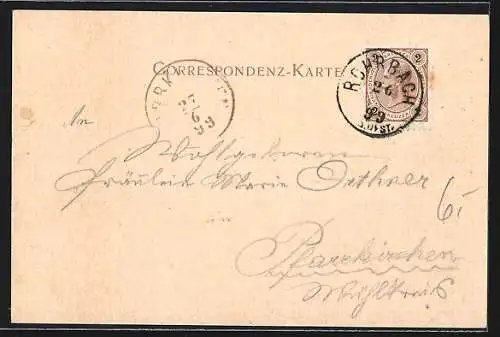 CORRESPONDENZ-KARTE
2
ROHRBACH
26
99
O.ÖST.
27
6
99
An
Wohlgeboren
Fräulein Marie Orthner
in
Pfarrkirchen
Mühlkreis
6/-